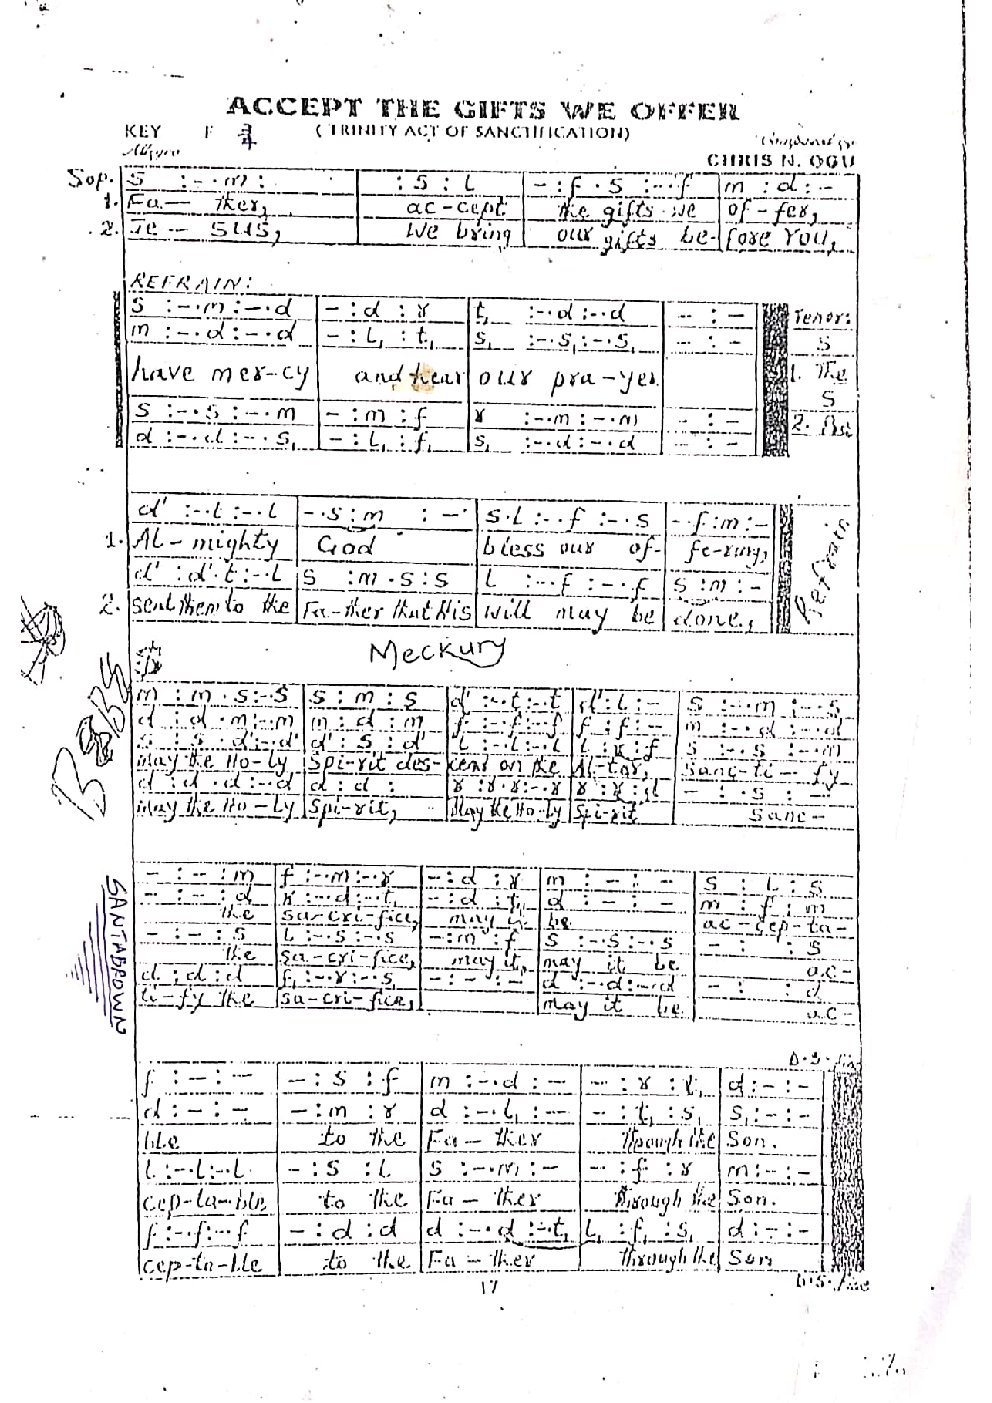 ACCEPT THE GIFTS WE OFFER
KEY F 3/4 (TRINITY ACT OF SANCTIFICATION)
Allegro
CHRIS N. OGU
Sop. S :-.m: : S : L - : f . S :-.f m : d : -
1. Fa- ther, ac-cept the gifts we of-fer,
2. Je- sus, We bring our gifts be- fore You,
REFRAIN:
S :-.m:-.d - : d : r t, :-.d:-.d - : - Tenor:
m :-.d:-.d - : L, : t, S, :-.S,:-.S, - : - S
have mer-cy and hear our pra-yer. 1. The
S
S :-.S:-.m - : m : f r :-.m:-.m - : - 2. 
d :-.d:-.S, - : L, : f, S, :-.d:-.d - : -
d' :-.t:-.L -.S:m : - S.L:-.f:-.S -.f:m:-
1. Al-mighty God bless our of- fe-ring,
d' : d'.t:-.L S : m.S:S L :-.f:-.f S:m:-
2. Sent them to the Fa-ther that His will may be done,
Refrain
Meckury
m : m.S:-.S S : m : S d' :-.t:-.t d':L:- S :-.m:-.S
d : d.m:-.m m : d : m f :-.f:-.f f : f : - m :-.d:-.d
S : S.d':-.d' d' : S : d' L :-.L:-.L L : r : f S :-.S:-.m
May the Ho-ly Spi-rit des- cend on the Al-tar, Sanc-ti-fy
d : d.d:-.d d : d : r : r.r:-.r r : r : - : S : -
May the Ho-ly Spi-rit, May the Ho-ly Spi-rit Sanc-
B
SANTABROWN
- : - : m f :-.m:-.r - : d : r m : - : - S : L : S
- : - : d r :-.d:-.t, - : d : t, d : - : - m : f : m
the sa-cri-fice, may it be ac-cep-ta-
- : - : S L :-.S:-.S - : m : f S :-.S:-.S - : : S
the sa-cri-fice, may it, may it be ac-
d : d : d f, :-.r:-.S, - : - : - d :-.d:-.d - : : d
ti-fy the sa-cri-fice, may it be ac-
D.S.
f : - : - - : S : f m :-.d:- - : r : t, d:-:-
d : - : - - : m : r d :-.L,:- - : t, : S, S,:-:-
ble to the Fa-ther through the Son.
L:-.L:-.L - : S : L S :-.m:- - : f : r m:-:-
cep-ta-ble to the Fa-ther through the Son.
f:-.f:-.f - : d : d d :-.d:-.t, L, : f, : S, d:-:-
cep-ta-ble to the Fa-ther through the Son
17
D.S.